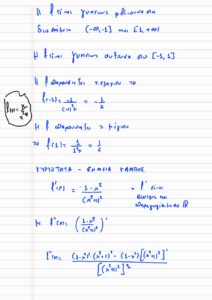 Η f είναι γνησίως φθίνουσα στα
διαστήματα (-∞,-1] και [1,+∞)
Η f είναι γνησίως αύξουσα στο [-1,1]
Η f παρουσιάζει ελάχιστο το
f(-1) = -1/((-1)²+1) = -1/2
Η f παρουσιάζει μέγιστο
το f(1) = 1/(1²+1) = 1/2
ΚΥΡΤΟΤΗΤΑ - ΣΗΜΕΙΑ ΚΑΜΠΗΣ
f'(x) = (1-x²)/(x²+1)² f' είναι
παραγωγίσιμη ℝ
f''(x) = ((1-x²)/(x²+1)²)'
f''(x) = ((1-x²)'(x²+1)² - (1-x²)[(x²+1)²]')/[(x²+1)²]²